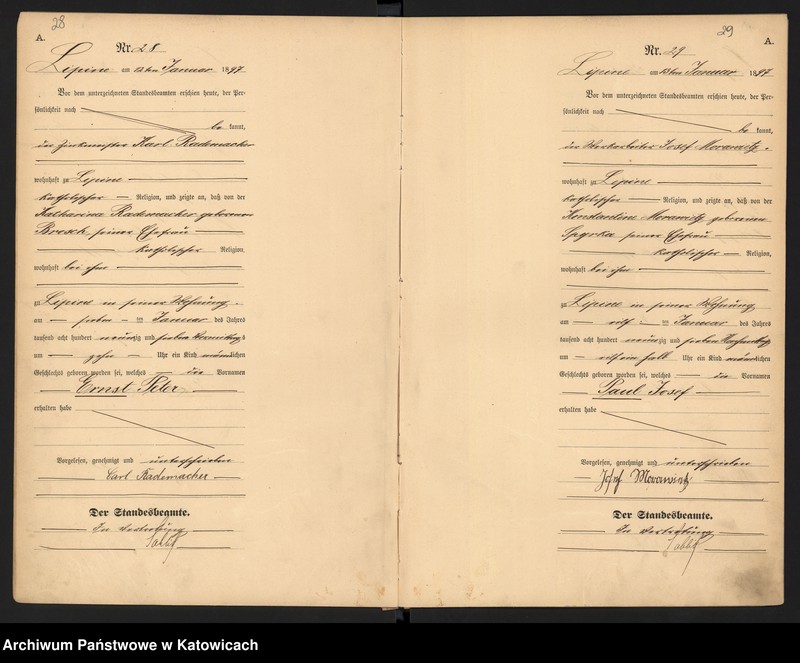 28
A.
Nr. 28
Lipine am 13ten Januar 1897
Vor dem unterzeichneten Standesbeamten erschien heute, der Per-
sönlichkeit nach
be kannt,
der Zinkmeister Karl Rademacher
wohnhaft zu Lipine
katholischer Religion, und zeigte an, daß von der
Katharina Rademacher geborenen
Bresch, seiner Ehefrau
katholischer Religion,
wohnhaft bei ihm
zu Lipine in seiner Wohnung
am sieben ten Januar des Jahres
tausend acht hundert neunzig und sieben Vormittags
um zehn Uhr ein Kind männlichen
Geschlechts geboren worden sei, welches die Vornamen
Ernst Peter
erhalten habe
Vorgelesen, genehmigt und unterschrieben
Carl Rademacher
Der Standesbeamte.
In Vertretung
29
A.
Nr. 29
Lipine am 13ten Januar 1897
Vor dem unterzeichneten Standesbeamten erschien heute, der Per-
sönlichkeit nach
be kannt,
der Werkarbeiter Josef Morawietz
wohnhaft zu Lipine
katholischer Religion, und zeigte an, daß von der
Konstantine Morawietz geborenen
Spyrka seiner Ehefrau
katholischer Religion,
wohnhaft bei ihm
zu Lipine in seiner Wohnung
am elf ten Januar des Jahres
tausend acht hundert neunzig und sieben Nachmittags
um elf ein halb Uhr ein Kind männlichen
Geschlechts geboren worden sei, welches die Vornamen
Paul Josef
erhalten habe
Vorgelesen, genehmigt und unterschrieben
Josef Morawietz
Der Standesbeamte.
In Vertretung
Archiwum Państwowe w Katowicach